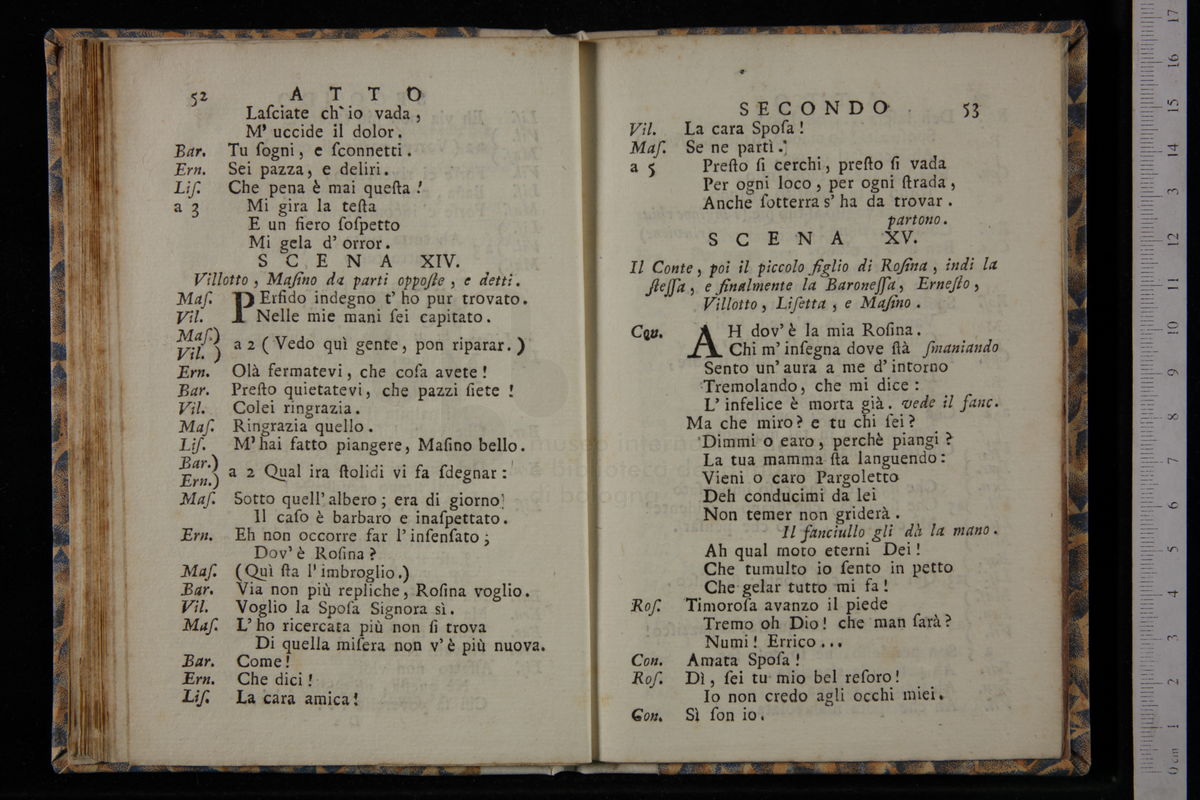 52 ATTO
Laſciate ch' io vada,
M' uccide il dolor.
Bar. Tu ſogni, e ſconnetti.
Ern. Sei pazza, e deliri.
Liſ. Che pena è mai queſta!
a 3 Mi gira la teſta
E un fiero ſoſpetto
Mi gela d' orror.
SCENA XIV.
Villotto, Maſino da parti oppoſte, e detti.
Maſ. PErfido indegno t' ho pur trovato.
Vil. Nelle mie mani ſei capitato.
Maſ.)
Vil. ) a 2 (Vedo quì gente, pon riparar.)
Ern. Olà fermatevi, che coſa avete!
Bar. Preſto quietatevi, che pazzi ſiete!
Vil. Colei ringrazia.
Maſ. Ringrazia quello.
Liſ. M' hai fatto piangere, Maſino bello.
Bar.)
Ern.) a 2 Qual ira ſtolidi vi fa ſdegnar:
Maſ. Sotto quell' albero; era di giorno
Il caſo è barbaro e inaſpettato.
Ern. Eh non occorre far l' inſenſato;
Dov' è Roſina?
Maſ. (Quì ſta l' imbroglio.)
Bar. Via non più repliche, Roſina voglio.
Vil. Voglio la Spoſa Signora sì.
Maſ. L' ho ricercata più non ſi trova
Di quella miſera non v' è più nuova.
Bar. Come!
Ern. Che dici!
Liſ. La cara amica!
SECONDO 53
Vil. La cara Spoſa!
Maſ. Se ne partì.
a 5 Preſto ſi cerchi, preſto ſi vada
Per ogni loco, per ogni ſtrada,
Anche ſotterra s' ha da trovar.
partono.
SCENA XV.
Il Conte, poi il piccolo figlio di Roſina, indi la
ſteſſa, e finalmente la Baroneſſa, Erneſto,
Villotto, Liſetta, e Maſino.
Con. AH dov' è la mia Roſina.
Chi m' inſegna dove ſtà ſmaniando
Sento un' aura a me d' intorno
Tremolando, che mi dice:
L' infelice è morta già. vede il fanc.
Ma che miro? e tu chi ſei?
Dimmi o earo, perchè piangi?
La tua mamma ſta languendo:
Vieni o caro Pargoletto
Deh conducimi da lei
Non temer non griderà.
Il fanciullo gli dà la mano.
Ah qual moto eterni Dei!
Che tumulto io ſento in petto
Che gelar tutto mi fa!
Roſ. Timoroſa avanzo il piede
Tremo oh Dio! che man ſarà?
Numi! Errico...
Con. Amata Spoſa!
Roſ. Dì, ſei tu mio bel reſoro!
Io non credo agli occhi miei.
Con. Sì ſon io.